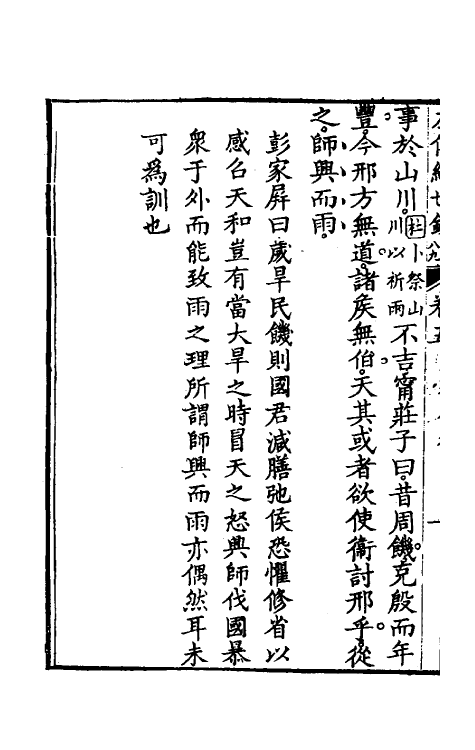 事於山川。杜卜祭山川以祈雨不吉甯莊子曰。昔周饑。克殷而年
豐。今邢方無道。諸矦無伯。天其或者欲使衞討邢乎。從
之。師興而雨。
彭家屏曰歲旱民饑則國君減膳弛侯恐懼修省以
感召天和豈有當大旱之時冒天之怒興師伐國暴
衆于外而能致雨之理所謂師興而雨亦偶然耳未
可爲訓也